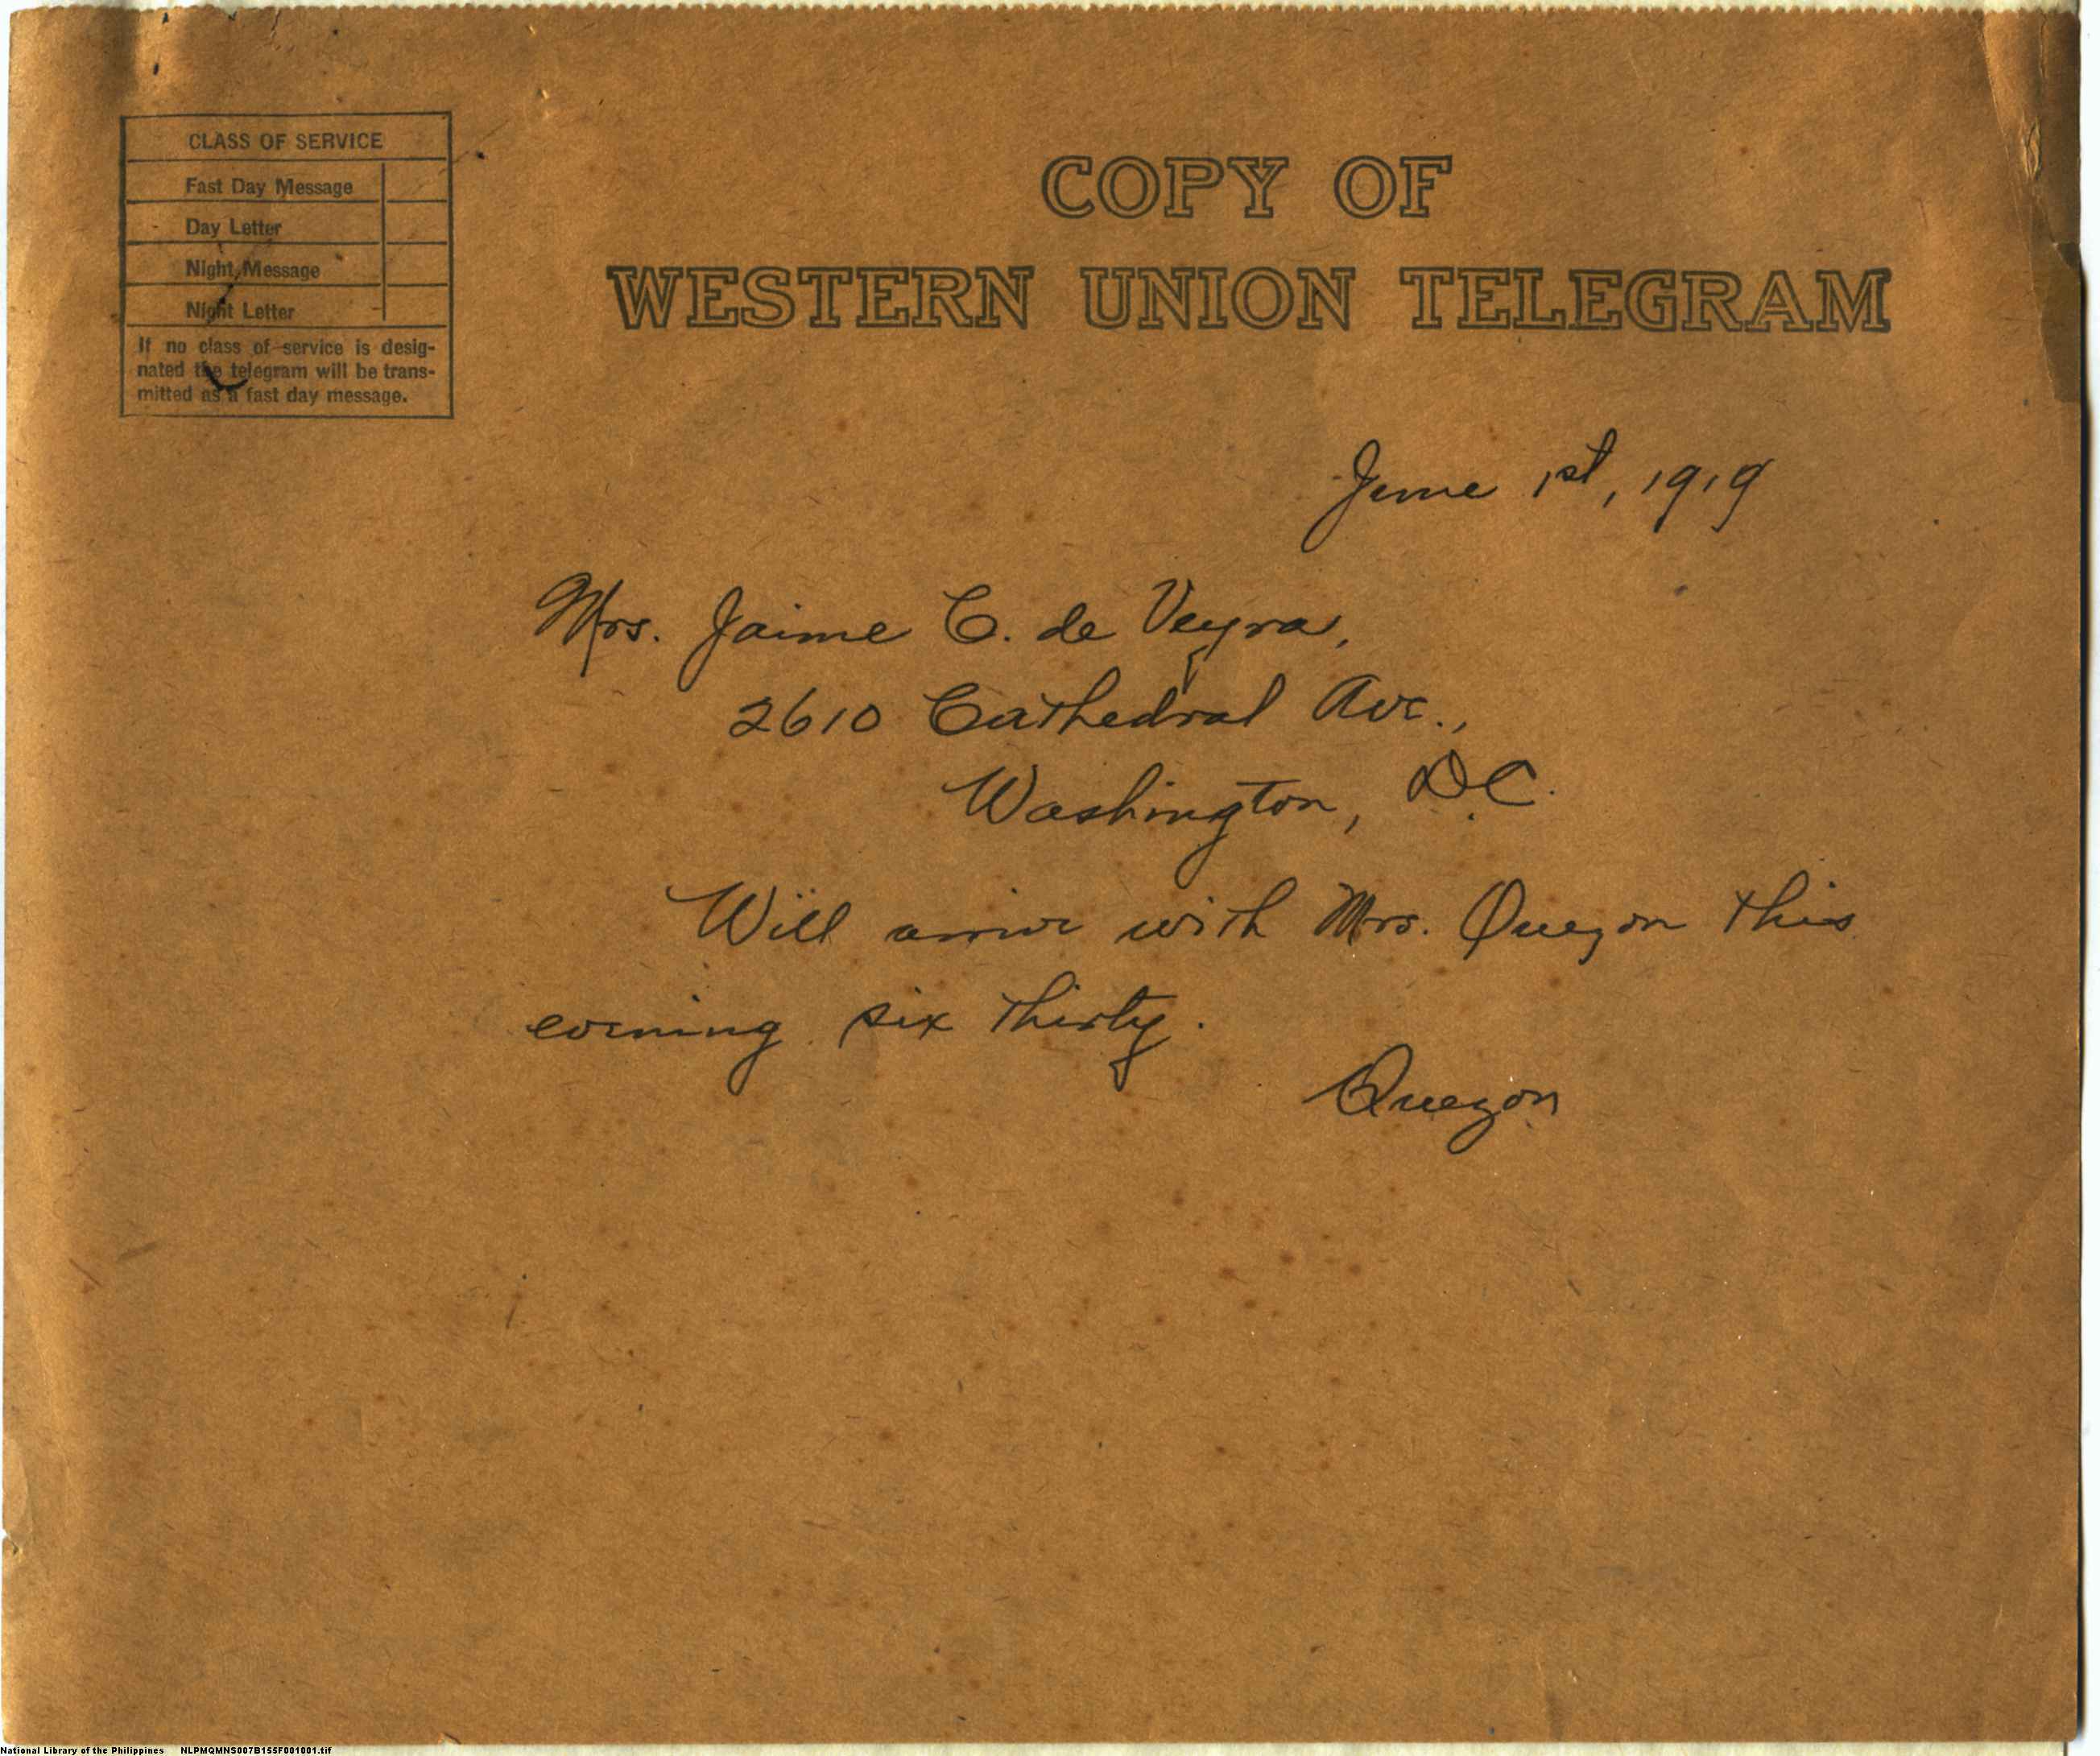 CLASS OF SERVICE
Fast Day Message
Day Letter
Night Message
Night Letter
If no class of service is desig-
nated the telegram will be trans-
mitted as a fast day message.
COPY OF
WESTERN UNION TELEGRAM
June 1st, 1919
Mrs. Jaime C. de Veyra,
2610 Cathedral Ave.,
Washington, D.C.
Will arrive with Mrs. Quezon this
evening six thirty.
Quezon
National Library of the Philippines NLPMQMNS007B155F001001.tif